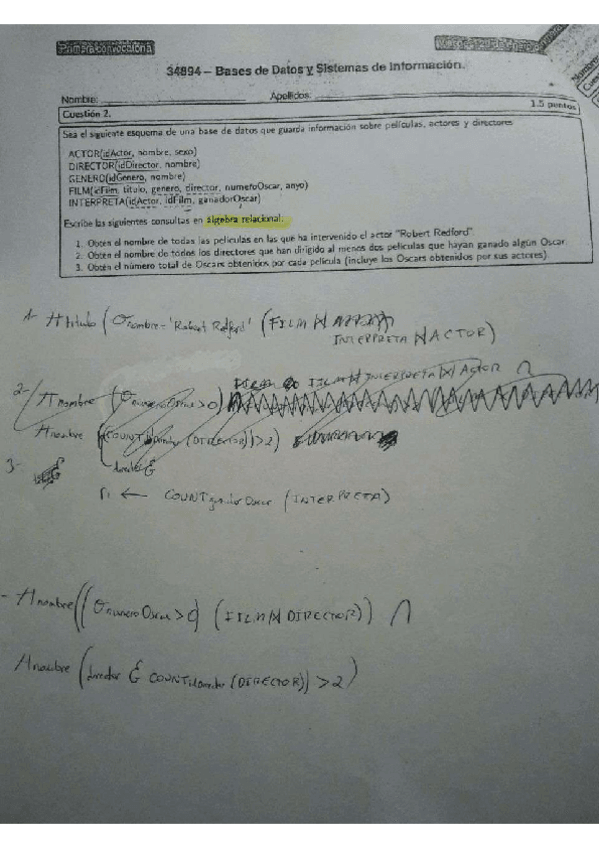 Primera convocatoria
34894 – Bases de Datos y Sistemas de Información.
Nombre: Apellidos:
Cuestión 2. 1.5 puntos
Sea el siguiente esquema de una base de datos que guarda información sobre películas, actores y directores
ACTOR(idActor, nombre, sexo)
DIRECTOR(idDirector, nombre)
GENERO(idGenero, nombre)
FILM(idFilm, titulo, genero, director, numeroOscar, anyo)
INTERPRETA(idActor, idFilm, ganadorOscar)
Escribe las siguientes consultas en álgebra relacional:
1. Obtén el nombre de todas las películas en las que ha intervenido el actor "Robert Redford".
2. Obtén el nombre de todos los directores que han dirigido al menos dos películas que hayan ganado algún Oscar.
3. Obtén el número total de Oscars obtenidos por cada película (incluye los Oscars obtenidos por sus actores).
1- π titulo (σ nombre = 'Robert Redford' (FILM ⋈
INTERPRETA ⋈ ACTOR)
2- π nombre (σ numeroOscar > 0) FILM ⋈ INTERPRETA ⋈ ACTOR ∩
π nombre (COUNT (DIRECTOR)) > 2)
3-
← COUNT ganadorOscar (INTERPRETA)
- π nombre ((σ numeroOscar > 0) (FILM ⋈ DIRECTOR)) ∩
π nombre (director G COUNT (DIRECTOR)) > 2)